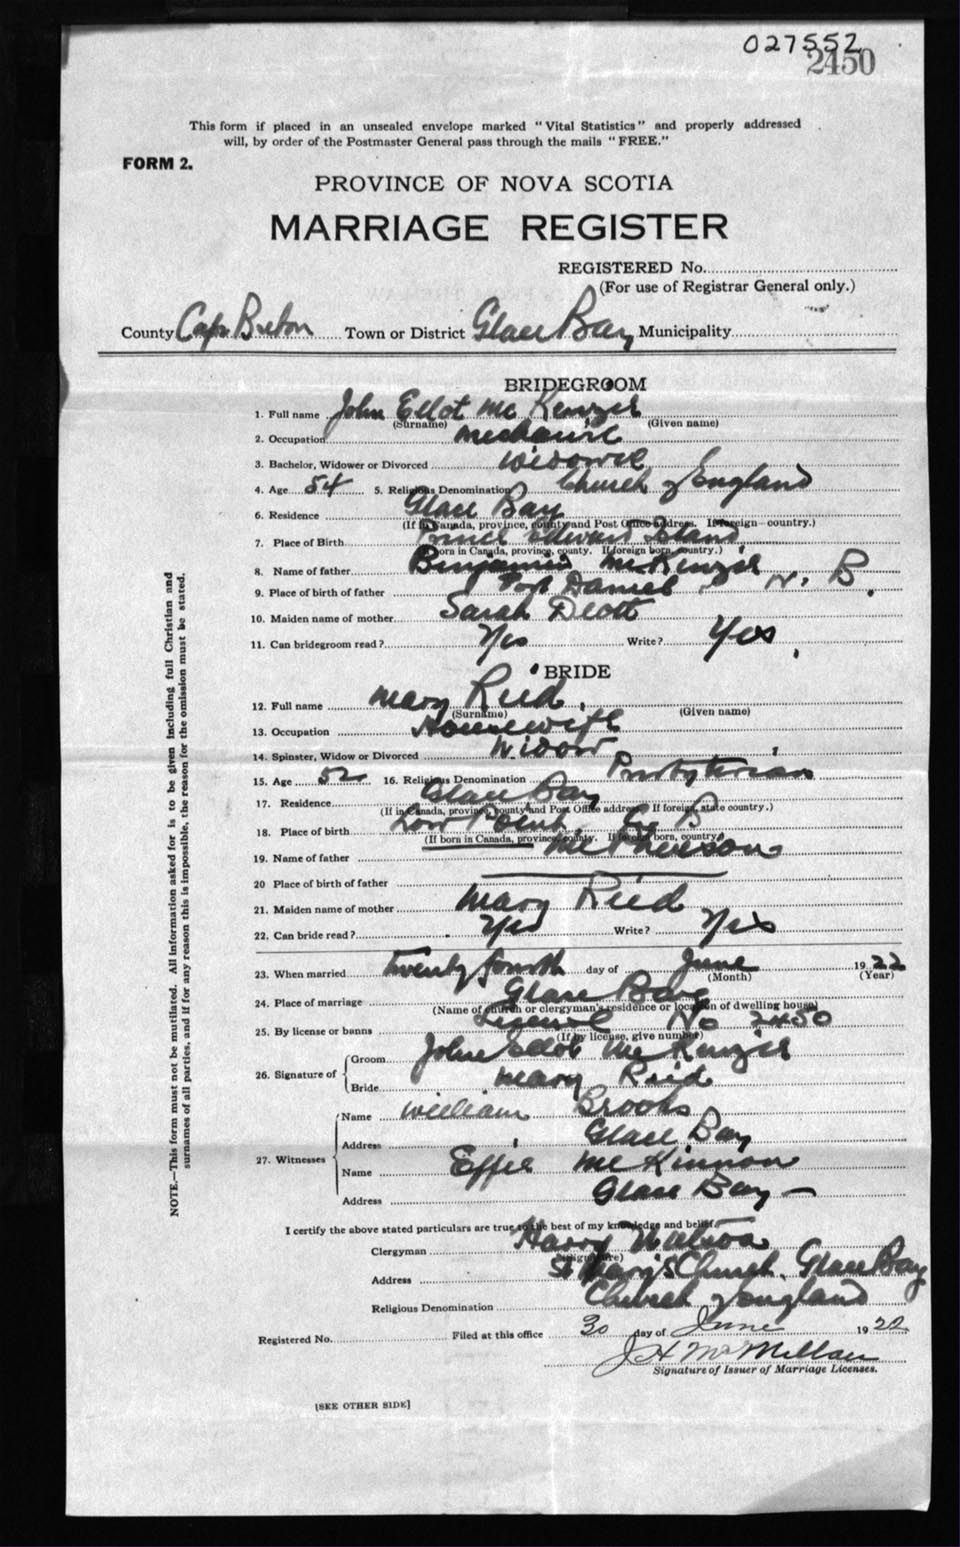 027552
2450
This form if placed in an unsealed envelope marked "Vital Statistics" and properly addressed
will, by order of the Postmaster General pass through the mails "FREE."
FORM 2.
PROVINCE OF NOVA SCOTIA
MARRIAGE REGISTER
REGISTERED No.
(For use of Registrar General only.)
County Cape Breton Town or District Glace Bay Municipality
BRIDEGROOM
1. Full name John Ellot McKenzie
(Surname) (Given name)
2. Occupation Mechanic
3. Bachelor, Widower or Divorced Widower
4. Age 54 5. Religious Denomination Church of England
6. Residence Glace Bay
(If in Canada, province, county and Post Office address. If foreign—country.)
7. Place of Birth Prince Edward Island
(If born in Canada, province, county. If foreign born, country.)
8. Name of father Benjamin McKenzie
9. Place of birth of father Port Daniel N. B.
10. Maiden name of mother Sarah
11. Can bridegroom read? Yes Write? Yes
BRIDE
12. Full name Mary Reid
(Surname) (Given name)
13. Occupation Housewife
14. Spinster, Widow or Divorced Widow
15. Age 52 16. Religious Denomination Presbyterian
17. Residence Glace Bay
(If in Canada, province, county and Post Office address. If foreign, state country.)
18. Place of birth Low Point C B
(If born in Canada, province, county. If foreign born, country.)
19. Name of father McPherson
20 Place of birth of father
21. Maiden name of mother Mary Reid
22. Can bride read? Yes Write? Yes
23. When married Twenty fourth day of June 1922
(Month) (Year)
24. Place of marriage Glace Bay
(Name of church or clergyman's residence or location of dwelling house)
25. By license or banns License No 2450
(If by license, give number)
26. Signature of
Groom John Ellot McKenzie
Bride Mary Reid
27. Witnesses
Name William Brooks
Address Glace Bay
Name Effie McKinnon
Address Glace Bay
I certify the above stated particulars are true to the best of my knowledge and belief.
Clergyman Harry Watson
(Signature)
Address St Mary's Church. Glace Bay
Religious Denomination Church of England
Registered No. Filed at this office 30 day of June 1922
J H McMillan
Signature of Issuer of Marriage Licenses.
[SEE OTHER SIDE]
NOTE.—This form must not be mutilated. All information asked for is to be given including full Christian and
surnames of all parties, and if for any reason this is impossible, the reason for the omission must be stated.